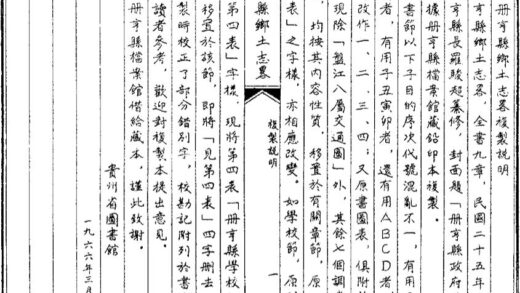 册亨縣鄉土志畧複製説明
亨縣鄉土志畧，全書九章，民國二十五年
亨縣長羅駿超纂修，封面題「册亨縣政府
據册亨縣檔案館藏鉛印本複製。
書節以下子目的序次代號混亂不一，有用
者，有用子丑寅卯者，還有用ABCD者
改作一、二、三、四；又原書圖表，俱附
現除「盤江八屬交通圖」外，其餘七個調
均按其内容性質，移置於有關章節，原
表」之字樣，亦相應改變。如學校節，原
縣鄉土志畧
複製説明
一
第四表」字樣，現將第四表「册亨縣學校
移置於該節，即將「見第四表」四字删去
製時校正了部分錯别字，校勘記附列於書
讀者參考，歡迎對複製本提出意見。
册亨縣檔案館借給藏本，謹此致謝。
貴州省圖書館
一九六六年三月